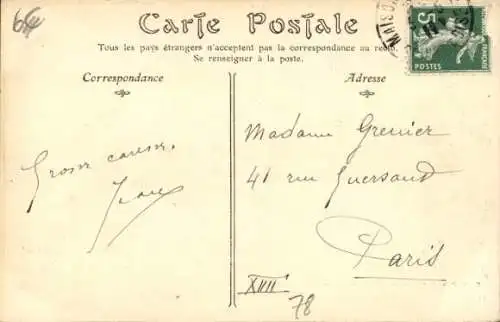 6€
Carte Postale
Tous les pays étrangers n'acceptent pas la correspondance au recto.
Se renseigner à la poste.
Correspondance
Adresse
MAISO
5
POSTES
Madame Grenier
41 rue Guersand
Paris
XVII
78
Grosse caresse,
Jean